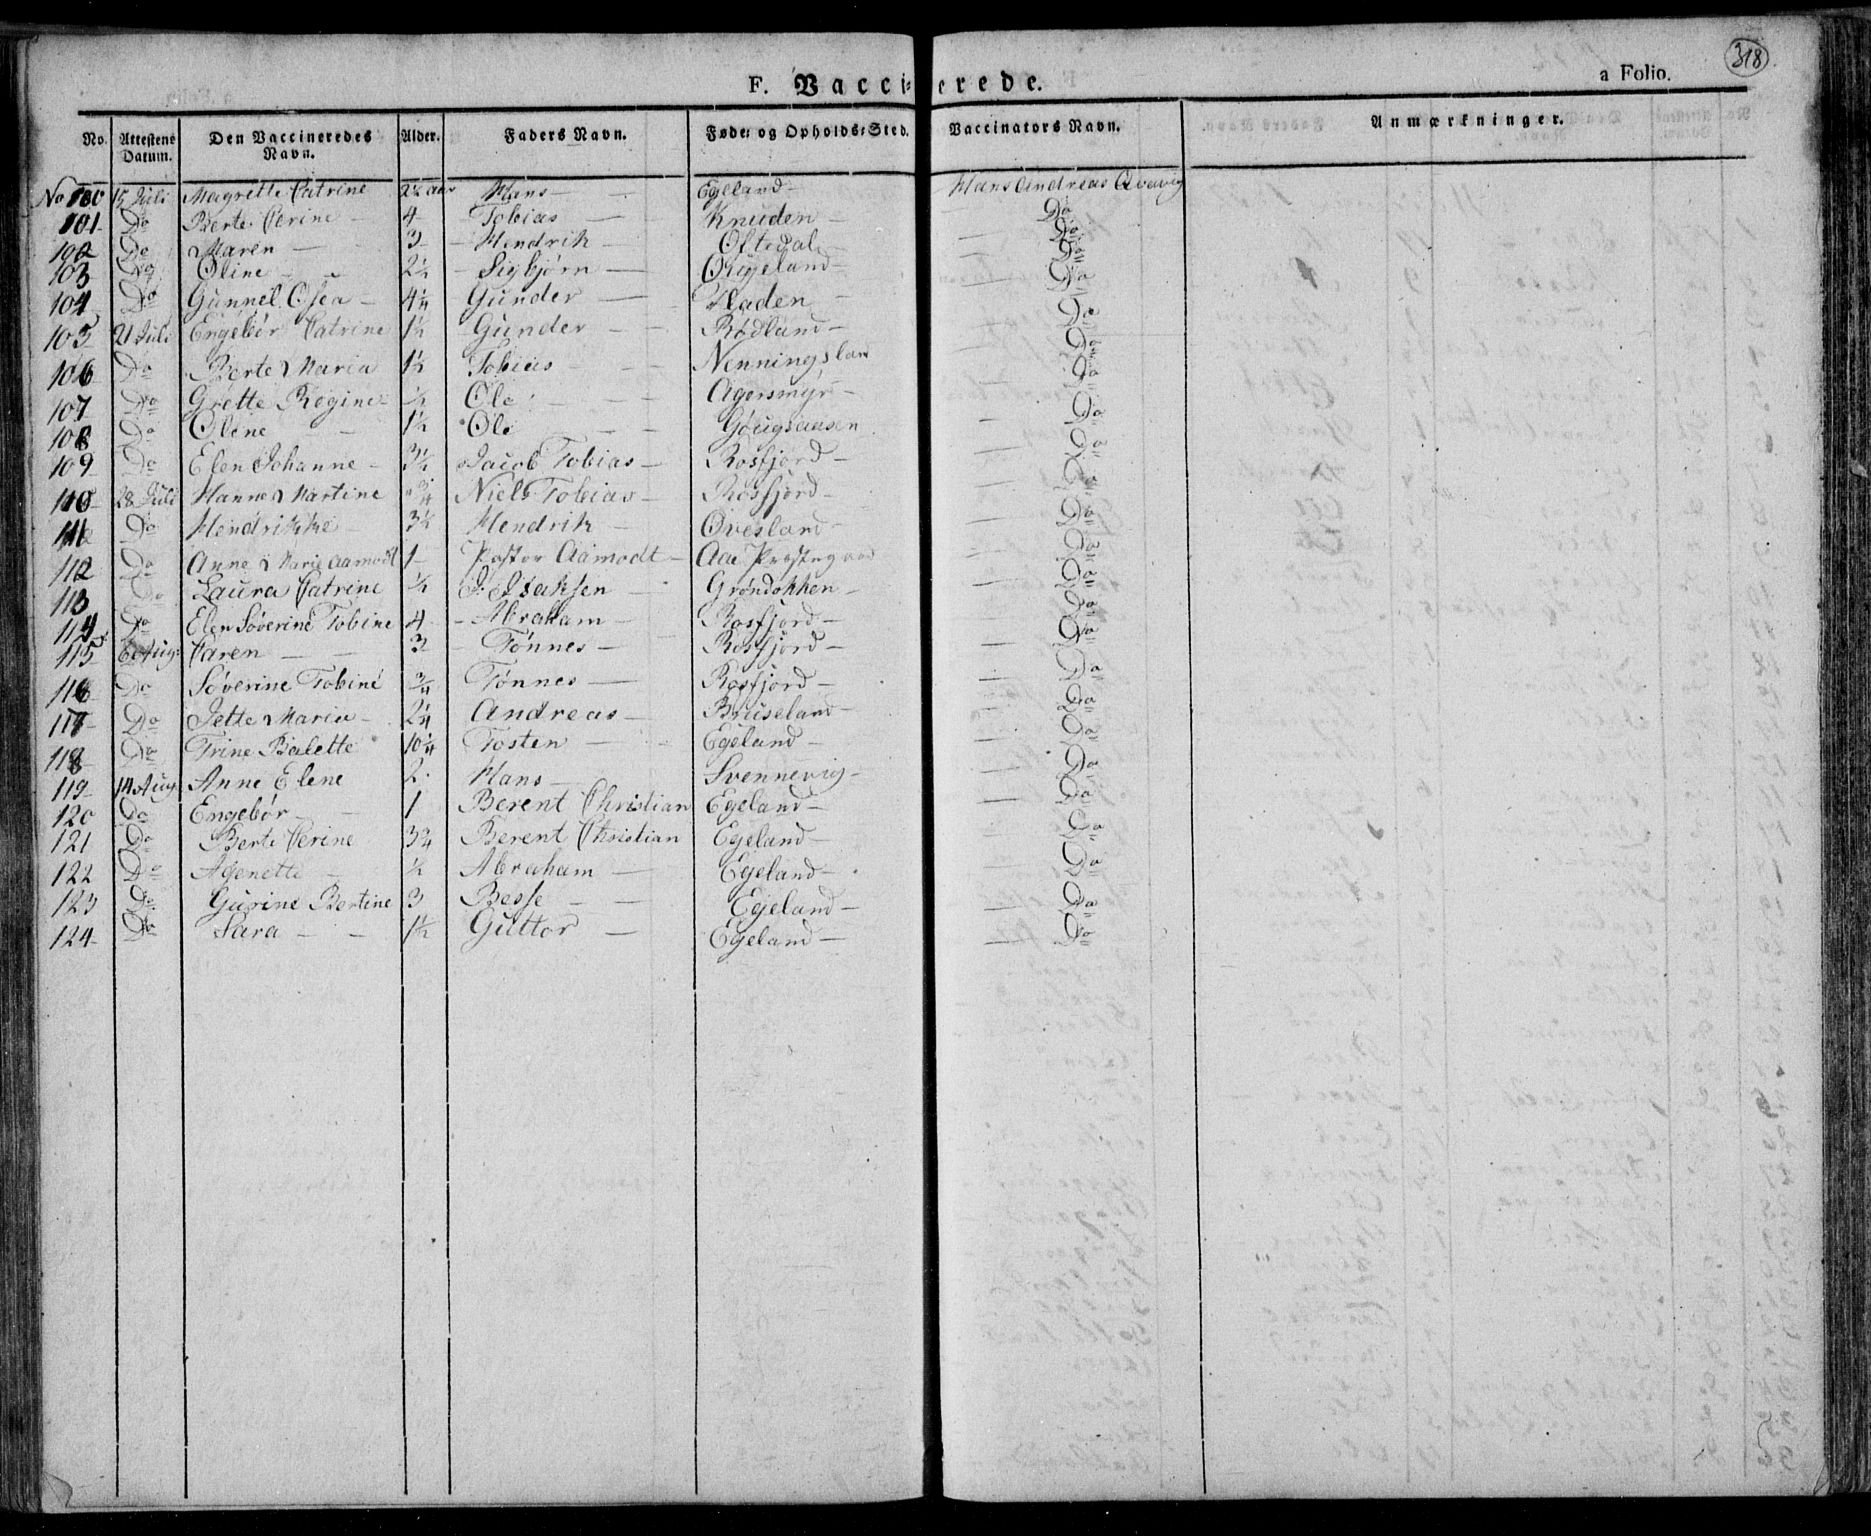 318
F. Vaccinerede.
a Folio.
No. Attestens Datum. Den Vaccineredes Navn. Alder. Faders Navn. Føde- og Opholds-Sted. Vaccinators Navn. Anmærkninger.
No 100 15 Juli Magrette Catrine 2½ aar Hans Egeland Hans Andreas
101 Do Berte Serine 4 Tobias Knuden Do
102 Do Maren 3 Hendrik Oftedal Do
103 Do Oline 2½ Sigbjørn Do
104 Do Gunnel Osea 4¼ Gunder Haden Do
105 21 Juli Engebør Catrine 1½ Gunder Rødland Do
106 Do Berte Maria 1½ Tobias Nenningsland Do
107 Do Grette Regine ½ Ole Agersmyr Do
108 Do Oline 1½ Ole Do
109 Do Elen Johanne 3½ Jacob Tobias Rosfjord Do
110 28 Juli Hanne Martine ¾ Niels Tobias Rosfjord Do
111 Do Hendrikke 3½ Hendrik Øvesland Do
112 Do Anne Marie Aamodt 1 Pastor Aamodt Aa Prestegaard Do
113 Do Laura Catrine ½ J. Isaksen Grøndokken Do
114 Do Elen Søverine Tobine 4 Abraham Rosfjord Do
115 6 Aug: Caren 3 Tønnes Rosfjord Do
116 Do Søverine Tobine ¾ Tønnes Rosfjord Do
117 Do Jette Maria 2¼ Andreas Bruseland Do
118 Do Trine Balette 10¼ Tosten Egeland Do
119 14 Aug Anne Elene 2 Hans Svennevig Do
120 Do Engebør 1 Berent Christian Egeland Do
121 Do Berte Serine 3¾ Berent Christian Egeland Do
122 Do Agenette ½ Abraham Egeland Do
123 Do Gurine Bertine 3 Besse Egeland Do
124 Do Sara 1½ Guttor Egeland Do